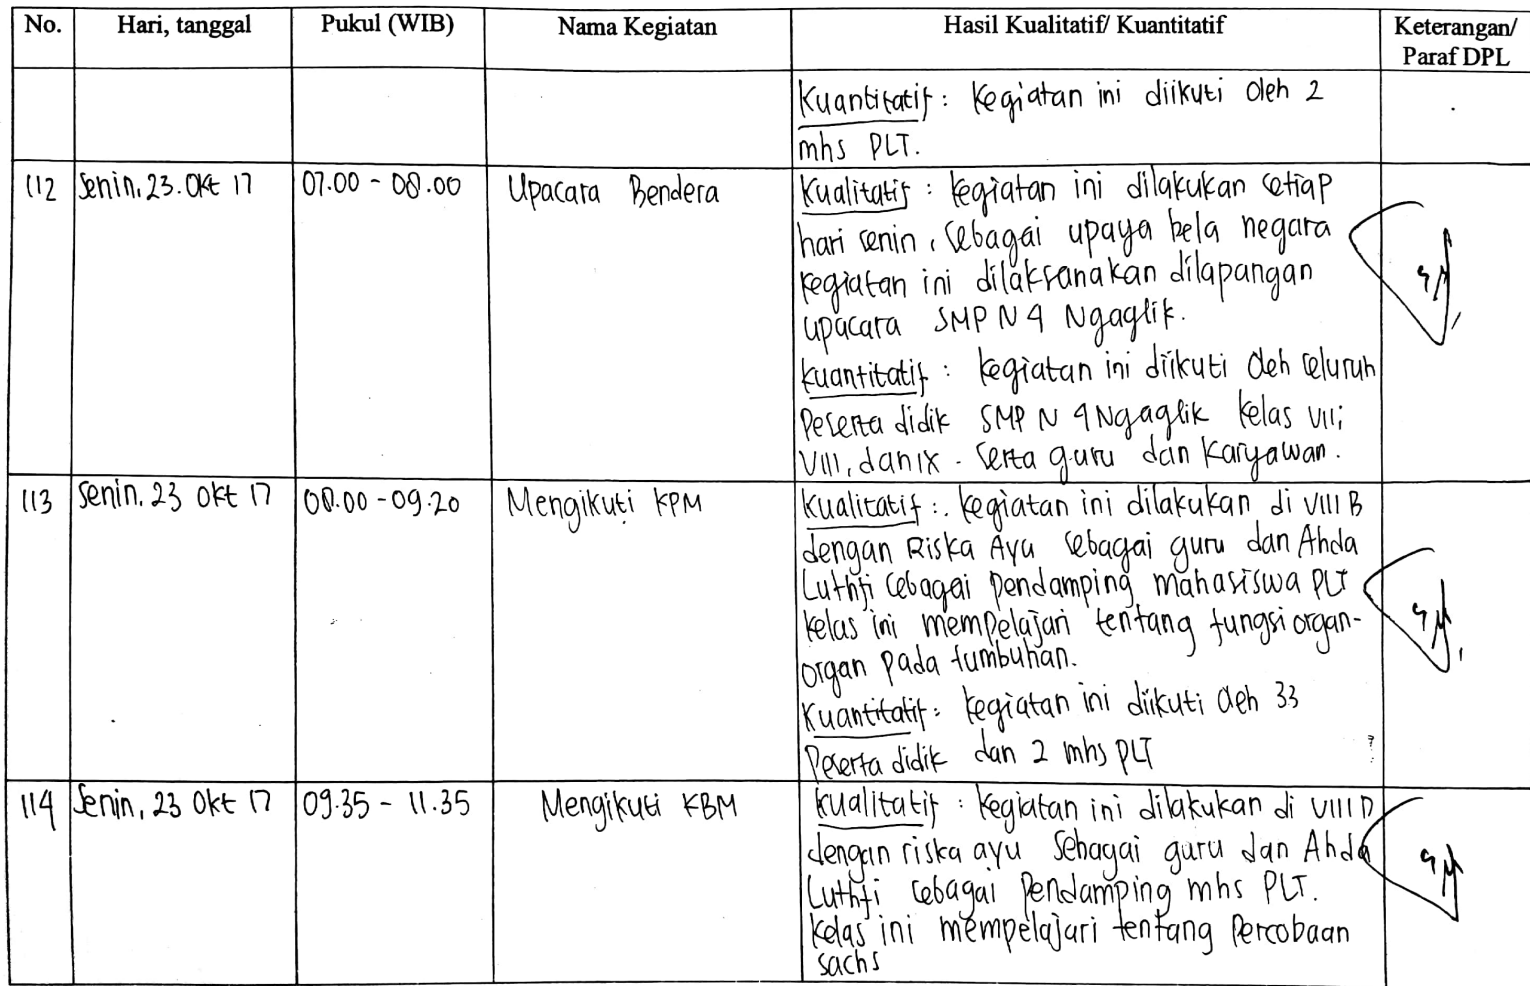 No. Hari, tanggal Pukul (WIB) Nama Kegiatan Hasil Kualitatif/ Kuantitatif Keterangan/
Paraf DPL
Kuantitatif : Kegiatan ini diikuti oleh 2
mhs PLT.
112 Senin, 23. Okt 17 07.00 - 08.00 Upacara Bendera Kualitatif : kegiatan ini dilakukan setiap
hari senin, sebagai upaya bela negara
kegiatan ini dilaksanakan dilapangan
upacara SMP N 4 Ngaglik.
kuantitatif : kegiatan ini diikuti oleh seluruh
Peserta didik SMP N 4 Ngaglik kelas VII,
VIII, dan IX . serta guru dan karyawan.
113 Senin, 23 Okt 17 08.00 - 09.20 Mengikuti KPM Kualitatif : kegiatan ini dilakukan di VIII B
dengan Riska Ayu sebagai guru dan Ahda
Luthfi sebagai pendamping mahasiswa PLT
kelas ini mempelajari tentang fungsi organ-
organ pada tumbuhan.
Kuantitatif : kegiatan ini diikuti oleh 33
Peserta didik dan 2 mhs PLT
114 Senin, 23 Okt 17 09.35 - 11.35 Mengikuti KBM kualitatif : kegiatan ini dilakukan di VIII D
dengan riska ayu sebagai guru dan Ahda
Luthfi sebagai Pendamping mhs PLT.
kelas ini mempelajari tentang Percobaan
sachs